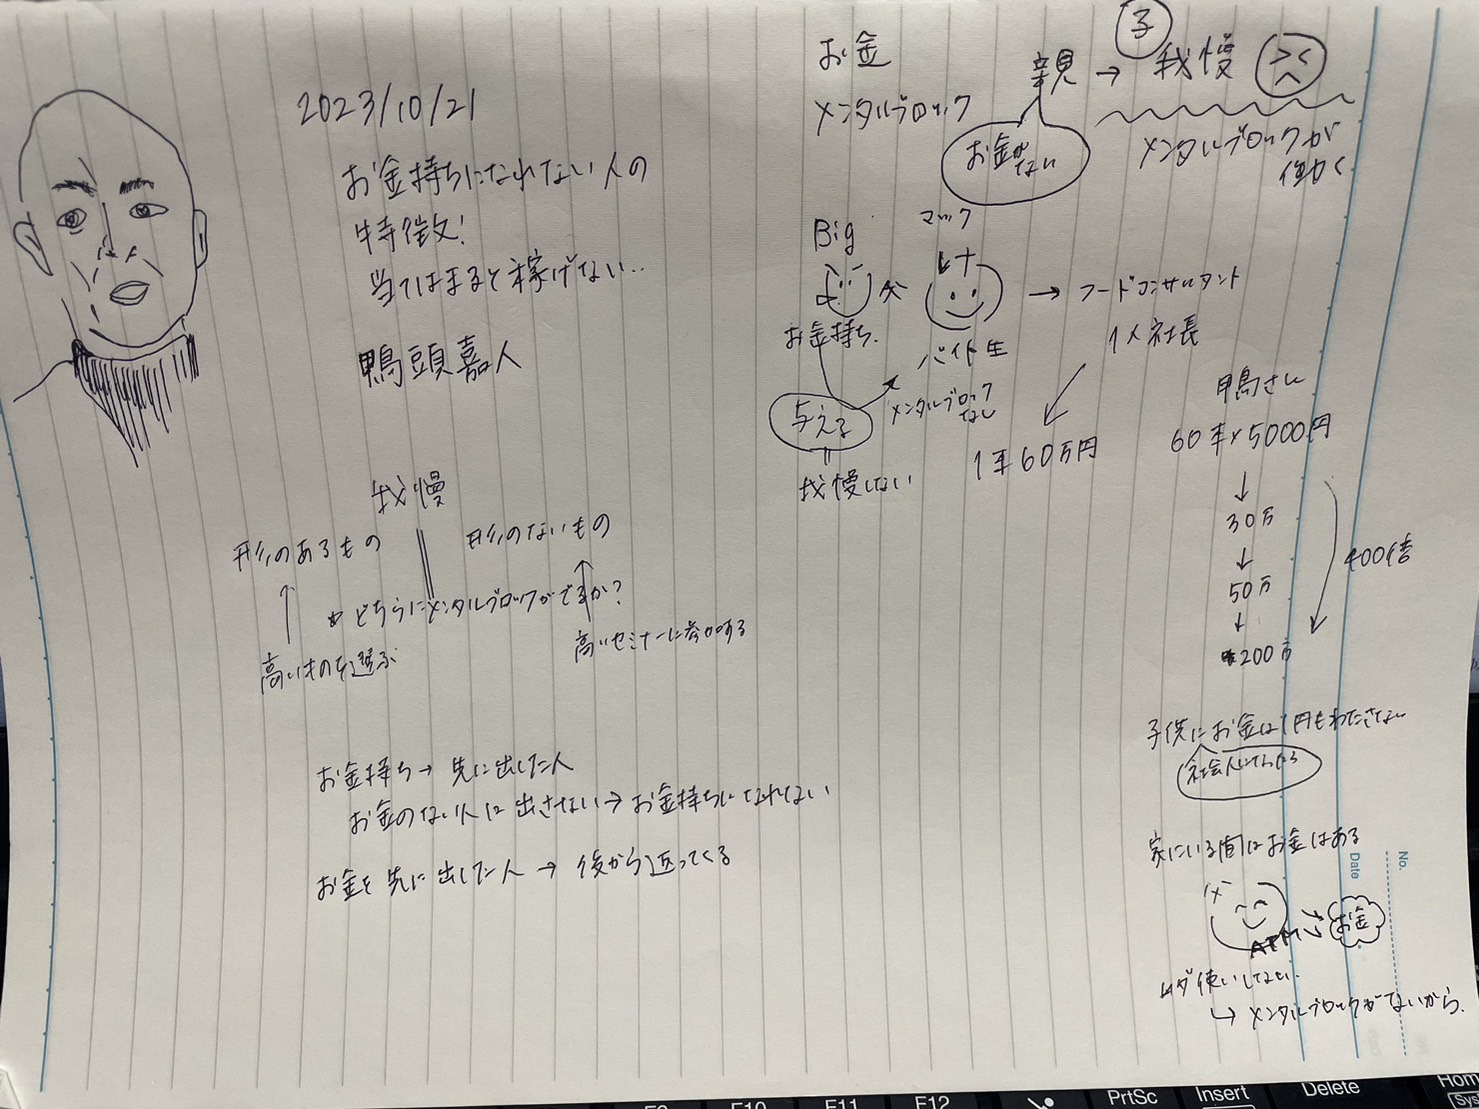 2023/10/21
お金持ちになれない人の
特徴!
当てはまると稼げない..
鴨頭嘉人
我慢
形のあるもの
形のないもの
どちらにメンタルブロックがでるか?
高いものを選ぶ
高いセミナーに参加する
お金持ち→先に出した人
お金のない人に出さない→お金持ちになれない
お金を先に出した人→後から返ってくる
お金
メンタルブロック
子
親→我慢
お金がない
メンタルブロックが
働く
Big
マック
お金持ち
バイト生
→フードコンサルタント
1人社長
与える
メンタルブロック
なし
我慢しない
1年60万円
鴨さん
60年×5000円
↓
30万
↓
50万
↓
200万
400倍
子供にお金は1円もわたさない
家にいる間はお金はある
お金
ムダ使いしない
↳メンタルブロックがないから.
No.
Date
F9
F10
F11
F12
PrtSc
Insert
Delete
Home